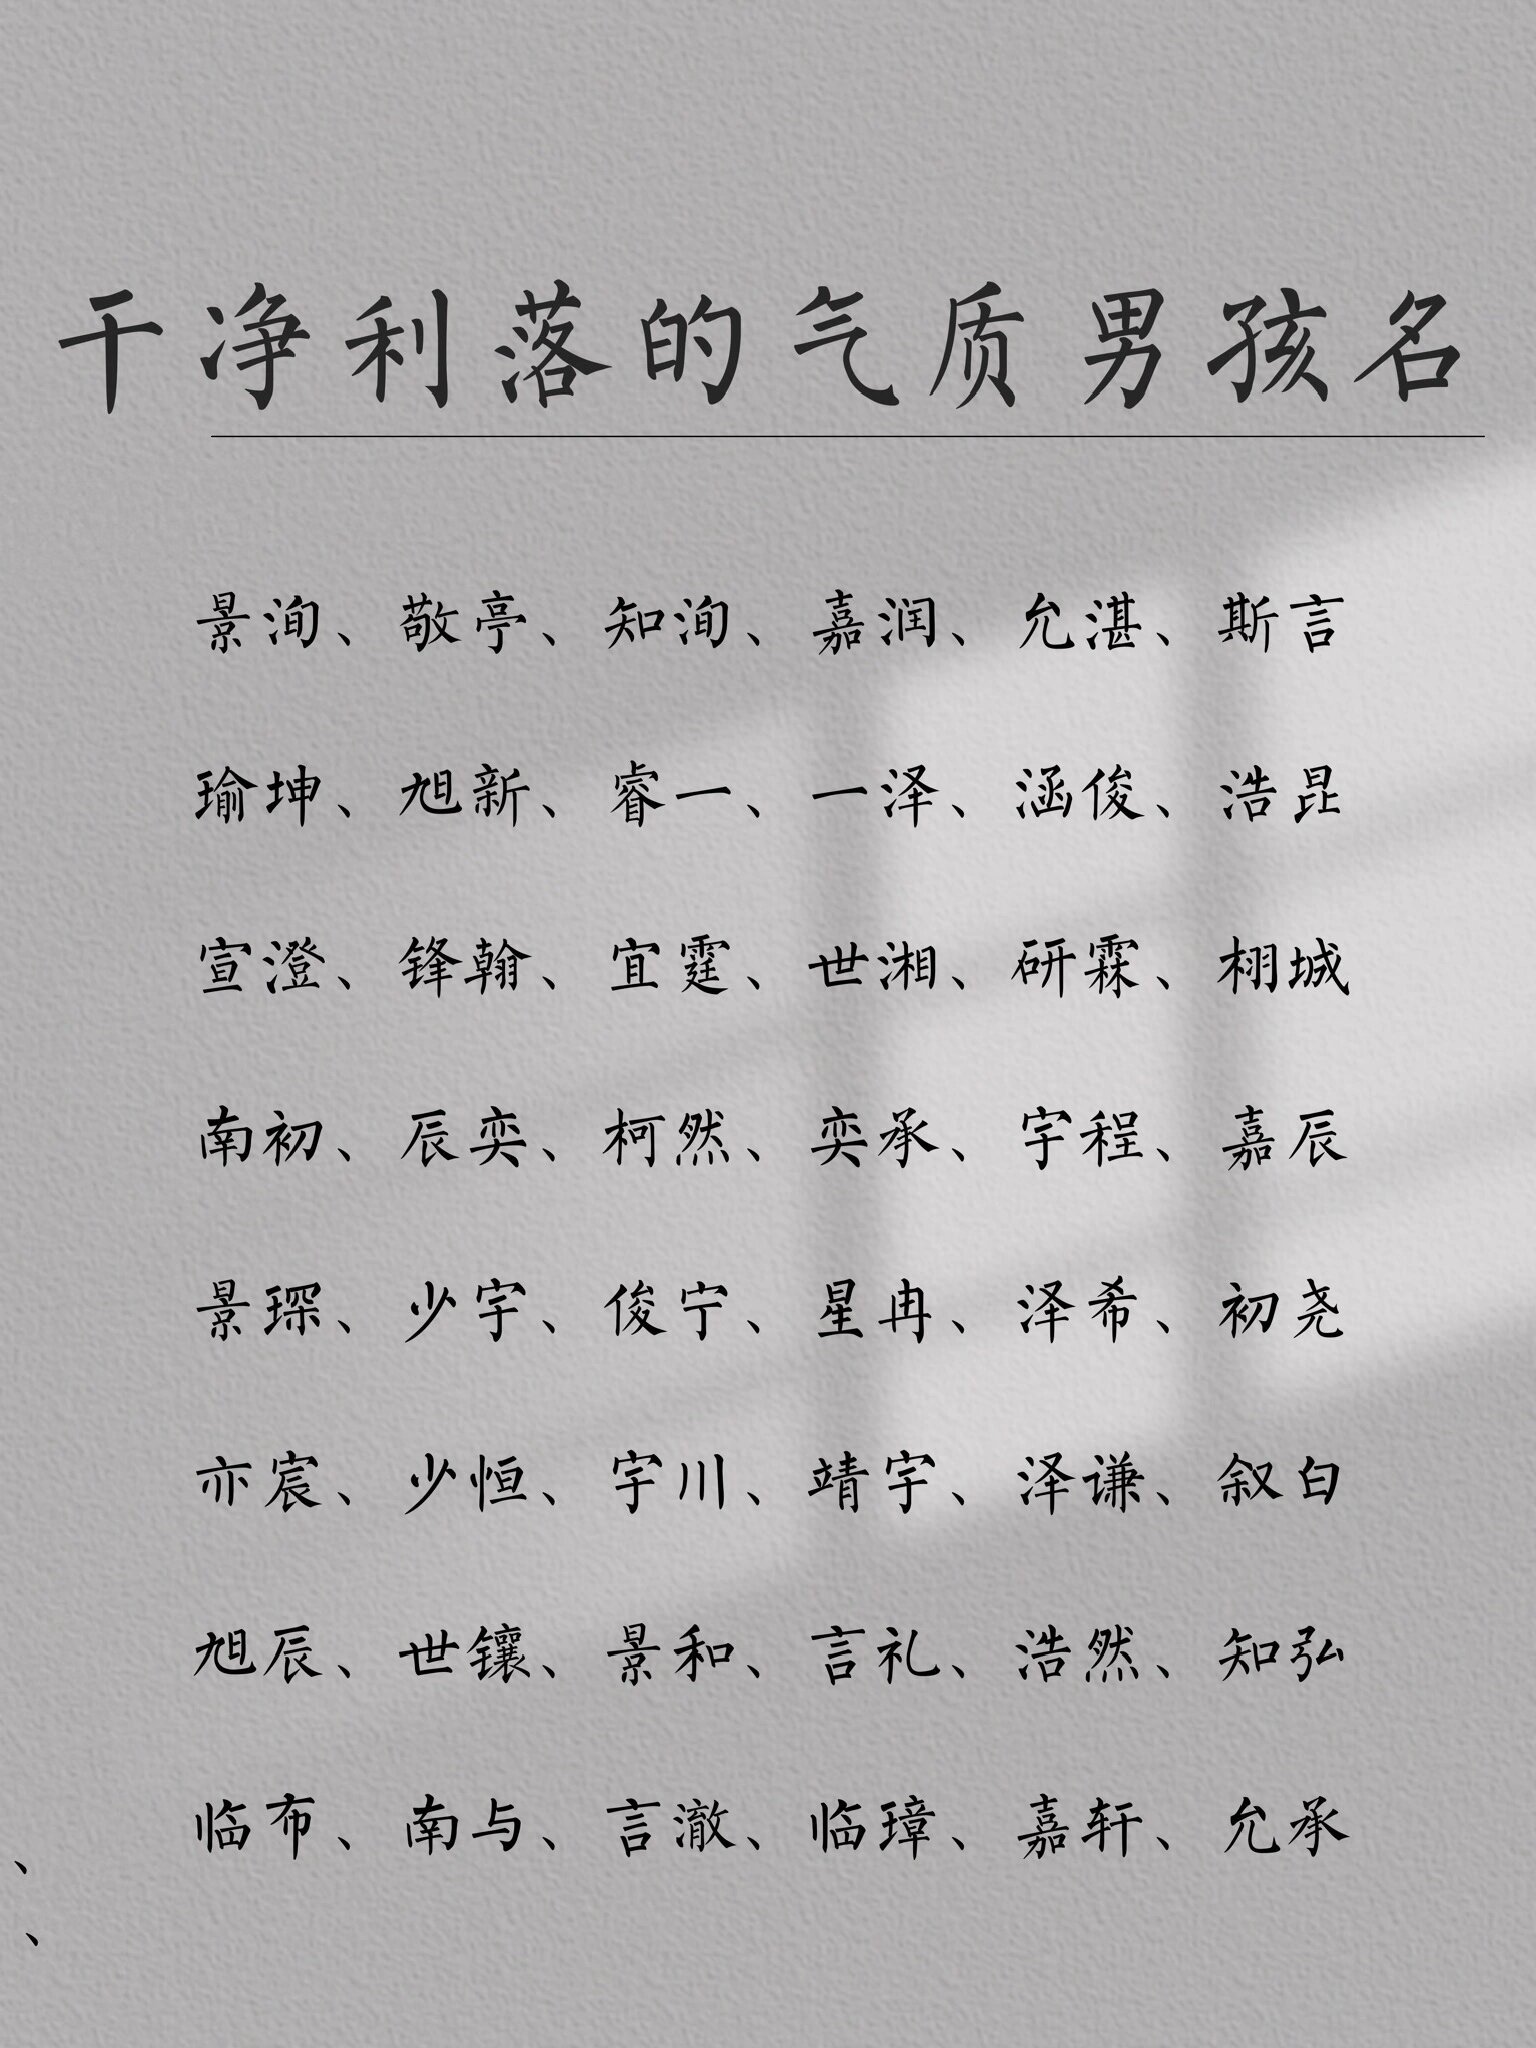 干净利落的气质男孩名
景洵、敬亭、知洵、嘉润、允湛、斯言
瑜坤、旭新、睿一、一泽、涵俊、浩昆
宣澄、锋翰、宜霆、世湘、研霖、栩城
南初、辰奕、柯然、奕承、宇程、嘉辰
景琛、少宇、俊宁、星冉、泽希、初尧
亦宸、少恒、宇川、靖宇、泽谦、叙白
旭辰、世镶、景和、言礼、浩然、知弘
临布、南与、言澈、临璋、嘉轩、允承
、
、